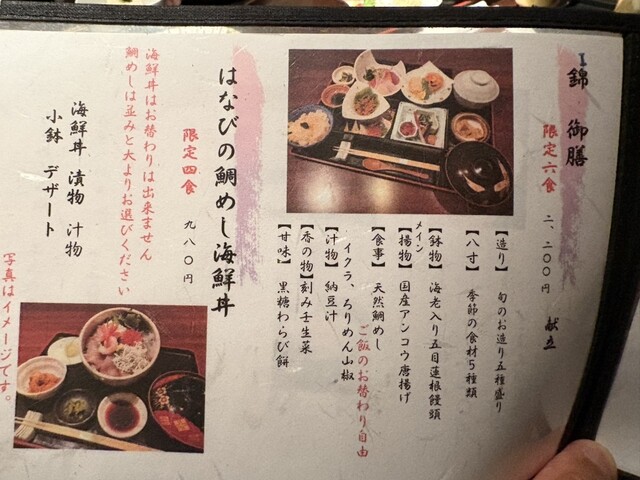 錦 御膳
限定六食 二、二〇〇円 献立
【造り】 旬のお造り五種盛り
【八寸】 季節の食材5種類
メイン
【鉢物】 海老入り五目蓮根饅頭
【揚物】 国産アンコウ唐揚げ
【食事】 天然鯛めし
ご飯のお替わり自由
イクラ、ちりめん山椒
【汁物】 納豆汁
【香の物】刻み壬生菜
【甘味】 黒糖わらび餅
はなびの鯛めし海鮮丼
限定四食 九八〇円
海鮮丼はお替わりは出来ません
鯛めしは並みと大よりお選びください
海鮮丼 漬物 汁物
小鉢 デザート
写真はイメージです。